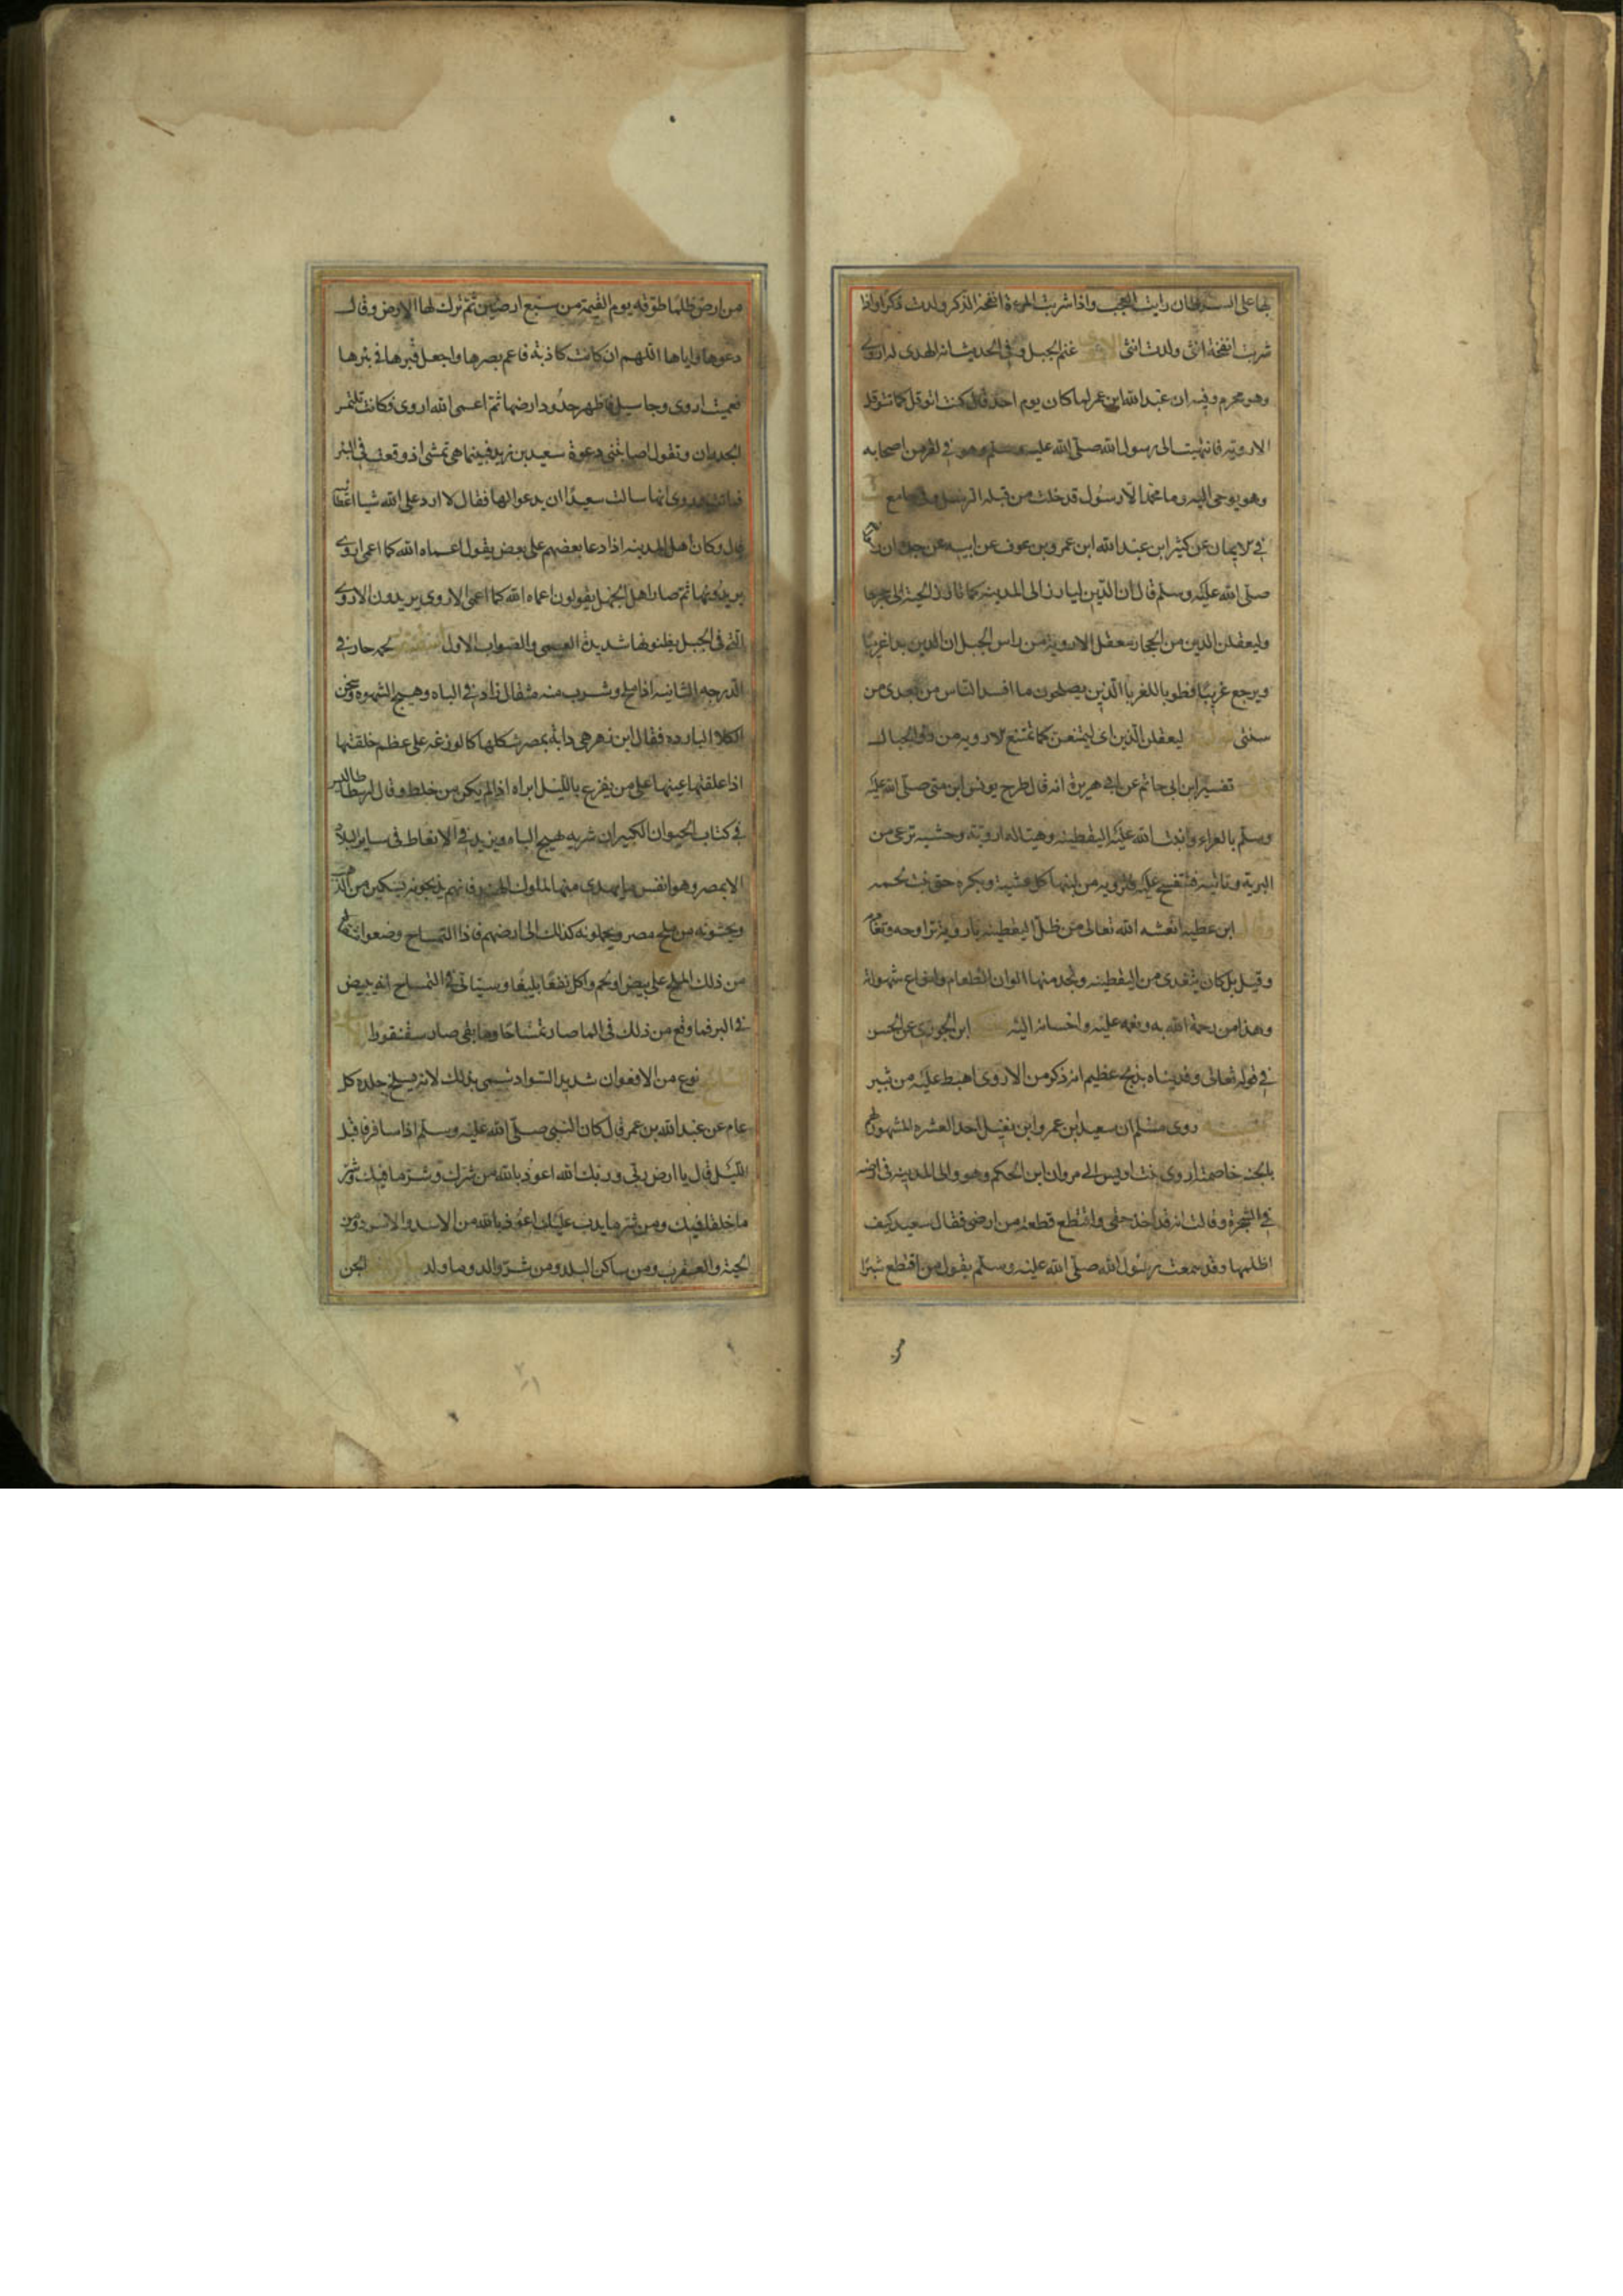 بها على السرطان رايت العجب واذا شربت المرءة انفخة الذكر ولدت ذكرا واذا
شربت انفخة انثى ولدت انثى غنم الجبل وفي الحديث انه اهدى له اروى
وهو محرم وفيه ان عبد الله ابن عمر لما كان يوم احد قال كنت اتوقل كما تتوقل
الاروية فانتهيت الى رسول الله صلى الله عليه وسلم وهو في نفر من اصحابه
وهو يوحى اليه وما محمد الا رسول قد خلت من قبله الرسل وفي جامع
في الايمان عن كثير ابن عبد الله ابن عمرو بن عوف عن ابيه عن جده ان
صلى الله عليه وسلم قال ان الدين ليارز الى المدينه كما تارز الحية الى جحرها
وليعقلن الدين من الحجاز معقل الاروية من راس الجبل ان الدين بدا غريبا
ويرجع غريبا فطوبا للغربا الذين يصلحون ما افسد الناس من بعدى من
سنتى ليعقلن الدين اى ليمتنعن كما تمتنع الارويه من روس الجبال
تفسير ابن ابى حاتم عن ابى هريرة انه قال طرح يونس ابن متى صلى الله عليه
وسلم بالعراء وانبت الله عليه اليقطينه وهيا له اروية وحشيه ترعى من
البرية وتاتيه فتفشح عليه فترويه من لبنها كل عشية وبكره حتى نبت لحمه
ابن عطيه انعشه الله تعالى من ظل اليقطينه باروية تراوحه وتغاديه
وقيل بل كان يتغدى من اليقطينه ويجد منها الوان الطعام وانواع شهواته
وهذا من رحمة الله به ونعمه عليه واحسانه اليه ابن الجوزى عن الحسن
في قوله تعالى وفديناه بذبح عظيم انه ذكر من الاروى اهبط عليه من ثبير
روى مسلم ان سعيد ابن عمرو ابن نفيل احد العشره المشهود لهم
بالجنه خاصمته اروى بنت اويس الى مروان ابن الحكم وهو والى المدينه في ارضه
في الشجرة وقالت انه قد اخذ حقى واقتطع قطعة من ارضى فقال سعيد كيف
اظلمها وقد سمعت رسول الله صلى الله عليه وسلم يقول من اقتطع شبرا
من ارض ظلما طوقه يوم القيمة من سبع ارضين ثم ترك لها الارض وقال
دعوها واياها اللهم ان كانت كاذبة فاعم بصرها واجعل قبرها في بئرها
فعميت اروى وجا سيل فاظهر حدود ارضها ثم اعمى الله اروى فكانت تلتمس
الجدران وتقول اصابتنى دعوة سعيد بن زيد فبينما هي تمشى اذ وقعت في البئر
فماتت وروى انها سالت سعيدا ان يدعو لها فقال لا ارد على الله شيا اعطانيه
قال وكان اهل المدينه اذا دعا بعضهم على بعض يقول اعماه الله كما اعمى اروى
يريدونها ثم صار اهل الجهل يقولون اعماه الله كما اعمى الاروى يريدون الاروى
التى في الجبل يظنونها شديدة العمى والصواب الاول لحمه حار في
الدرجه الثانيه اذا ملح وشرب منه مثقال زاد في الباه وهيج الشهوه وسخن
الكلا البارده فقال ابن زهر هي دابة بمصر شكلها كالوزغه على عظم خلقتها
اذا علقت عينها على من يفزع بالليل ابراه اذا لم يكن من خلط وقال ارسطاطاليس
في كتاب الحيوان الكبير ان شربه يهيج الباه ويزيد في الانعاظ في ساير البلاد
الا بمصر وهو انفس ما يهدى منها لملوك الهند فانهم يذبحونه بسكين من الذهب
ويحشونه من ملح مصر ويحملونه كذلك الى ارضهم فاذا وضعوا
من ذلك الملح على بيض او لحم واكل نفعا بليغا وسياتى في التمساح انه يبيض
في البر فما وقع من ذلك في الما صار تمساحا وما بقى صار سقنقورا
نوع من الافعوان شديد السواد سمى بذلك لانه يسلخ جلده كل
عام عن عبد الله بن عمر قال كان النبى صلى الله عليه وسلم اذا سافر فاقبل
الليل قال يا ارض ربى وربك الله اعوذ بالله من شرك وشر ما فيك وشر
ما خلق فيك ومن شر ما يدب عليك اعوذ بالله من الاسد والاسود ومن
الحية والعقرب ومن ساكن البلد ومن شر والد وما ولد الجن